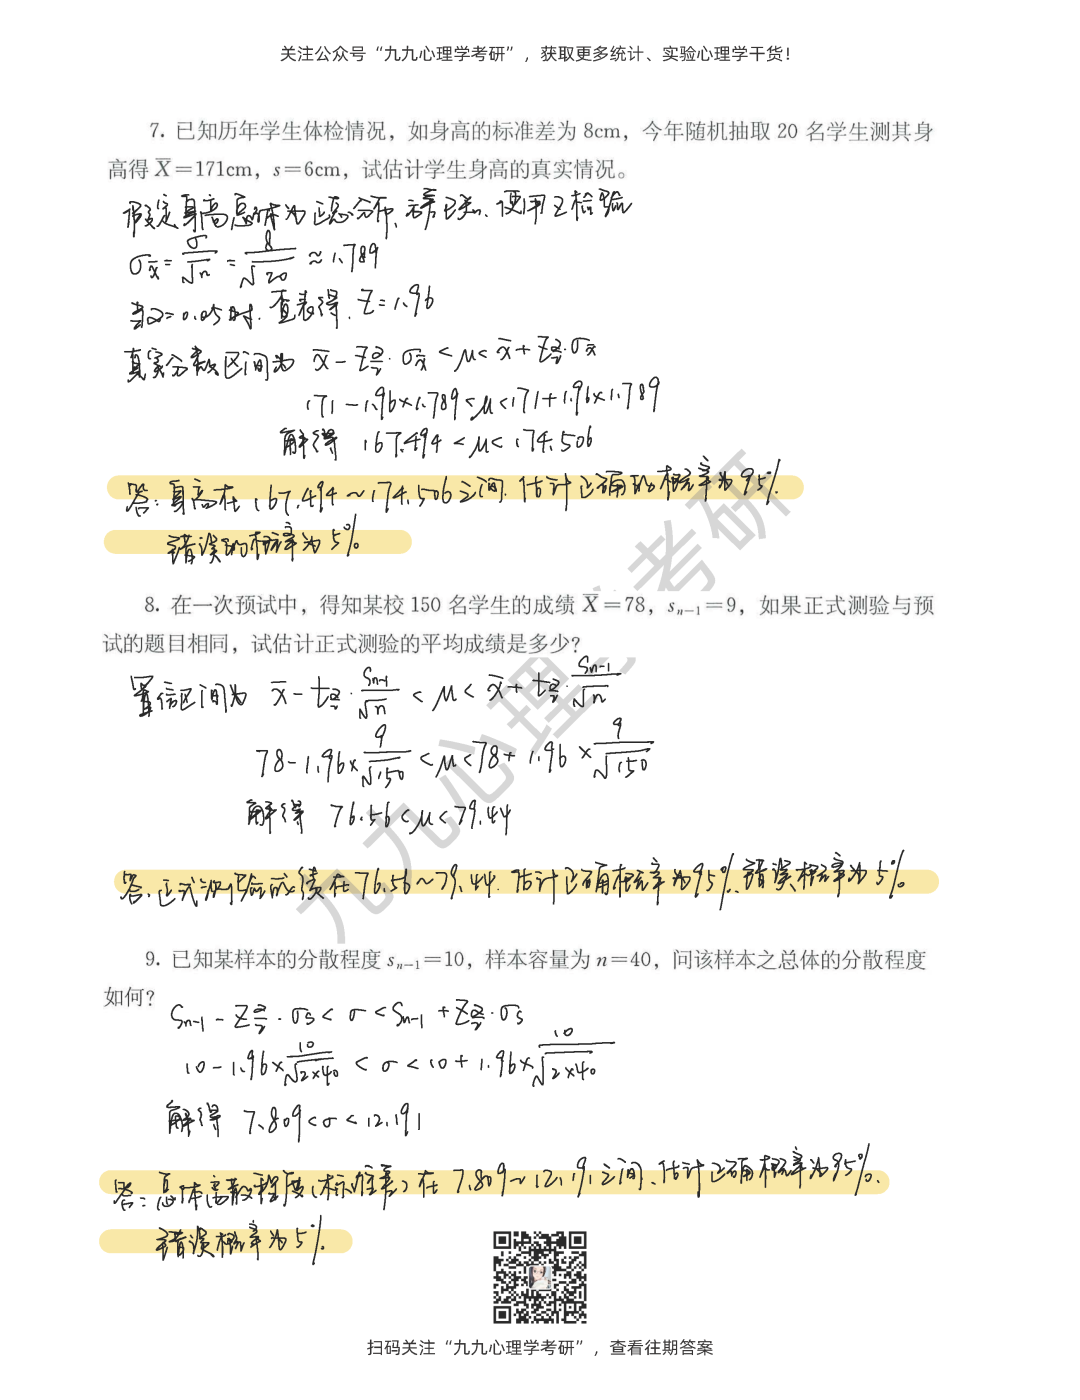 关注公众号“九九心理学考研”，获取更多统计、实验心理学干货！
7. 已知历年学生体检情况，如身高的标准差为 8cm，今年随机抽取 20 名学生测其身
高得 X̄=171cm，s=6cm，试估计学生身高的真实情况。
假定身高总体为正态分布，方差已知、使用Z检验
σx̄ = σ/√n = 8/√20 ≈ 1.789
当α=0.05时．查表得．Z=1.96
真实分数区间为 x̄ - Zα/2 · σx̄ < μ < x̄ + Zα/2 · σx̄
171 - 1.96×1.789 < μ < 171 + 1.96×1.789
解得 167.494 < μ < 174.506
答：身高在 167.494～174.506之间．估计正确的概率为95%．
错误的概率为5%
8. 在一次预试中，得知某校 150 名学生的成绩 X̄=78，sn-1=9，如果正式测验与预
试的题目相同，试估计正式测验的平均成绩是多少？
置信区间为 x̄ - tα/2 · Sn-1/√n < μ < x̄ + tα/2 · Sn-1/√n
78 - 1.96 × 9/√150 < μ < 78 + 1.96 × 9/√150
解得 76.56 < μ < 79.44
答．正式测验成绩在76.56～79.44．估计正确概率为95%、错误概率为5%
9. 已知某样本的分散程度 sn-1=10，样本容量为 n=40，问该样本之总体的分散程度
如何？
Sn-1 - Zα/2 · σs < σ < Sn-1 + Zα/2 · σs
10 - 1.96 × 10/√2×40 < σ < 10 + 1.96 × 10/√2×40
解得 7.809 < σ < 12.191
答：总体离散程度(标准差)在 7.809～12.191之间、估计正确概率为95%．
错误概率为5%
九九心理学考研
扫码关注“九九心理学考研”，查看往期答案